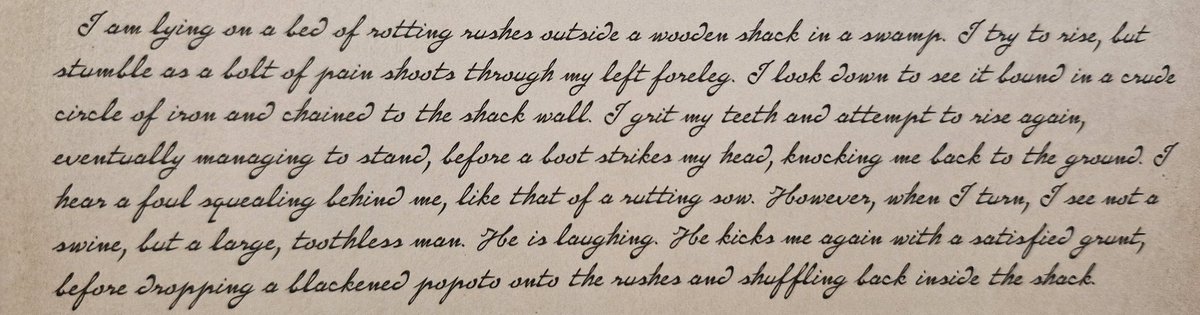 I am lying on a bed of rotting rushes outside a wooden shack in a swamp. I try to rise, but
stumble as a bolt of pain shoots through my left foreleg. I look down to see it bound in a crude
circle of iron and chained to the shack wall. I grit my teeth and attempt to rise again,
eventually managing to stand, before a boot strikes my head, knocking me back to the ground. I
hear a foul squealing behind me, like that of a rutting sow. However, when I turn, I see not a
swine, but a large, toothless man. He is laughing. He kicks me again with a satisfied grunt,
before dropping a blackened popoto onto the rushes and shuffling back inside the shack.